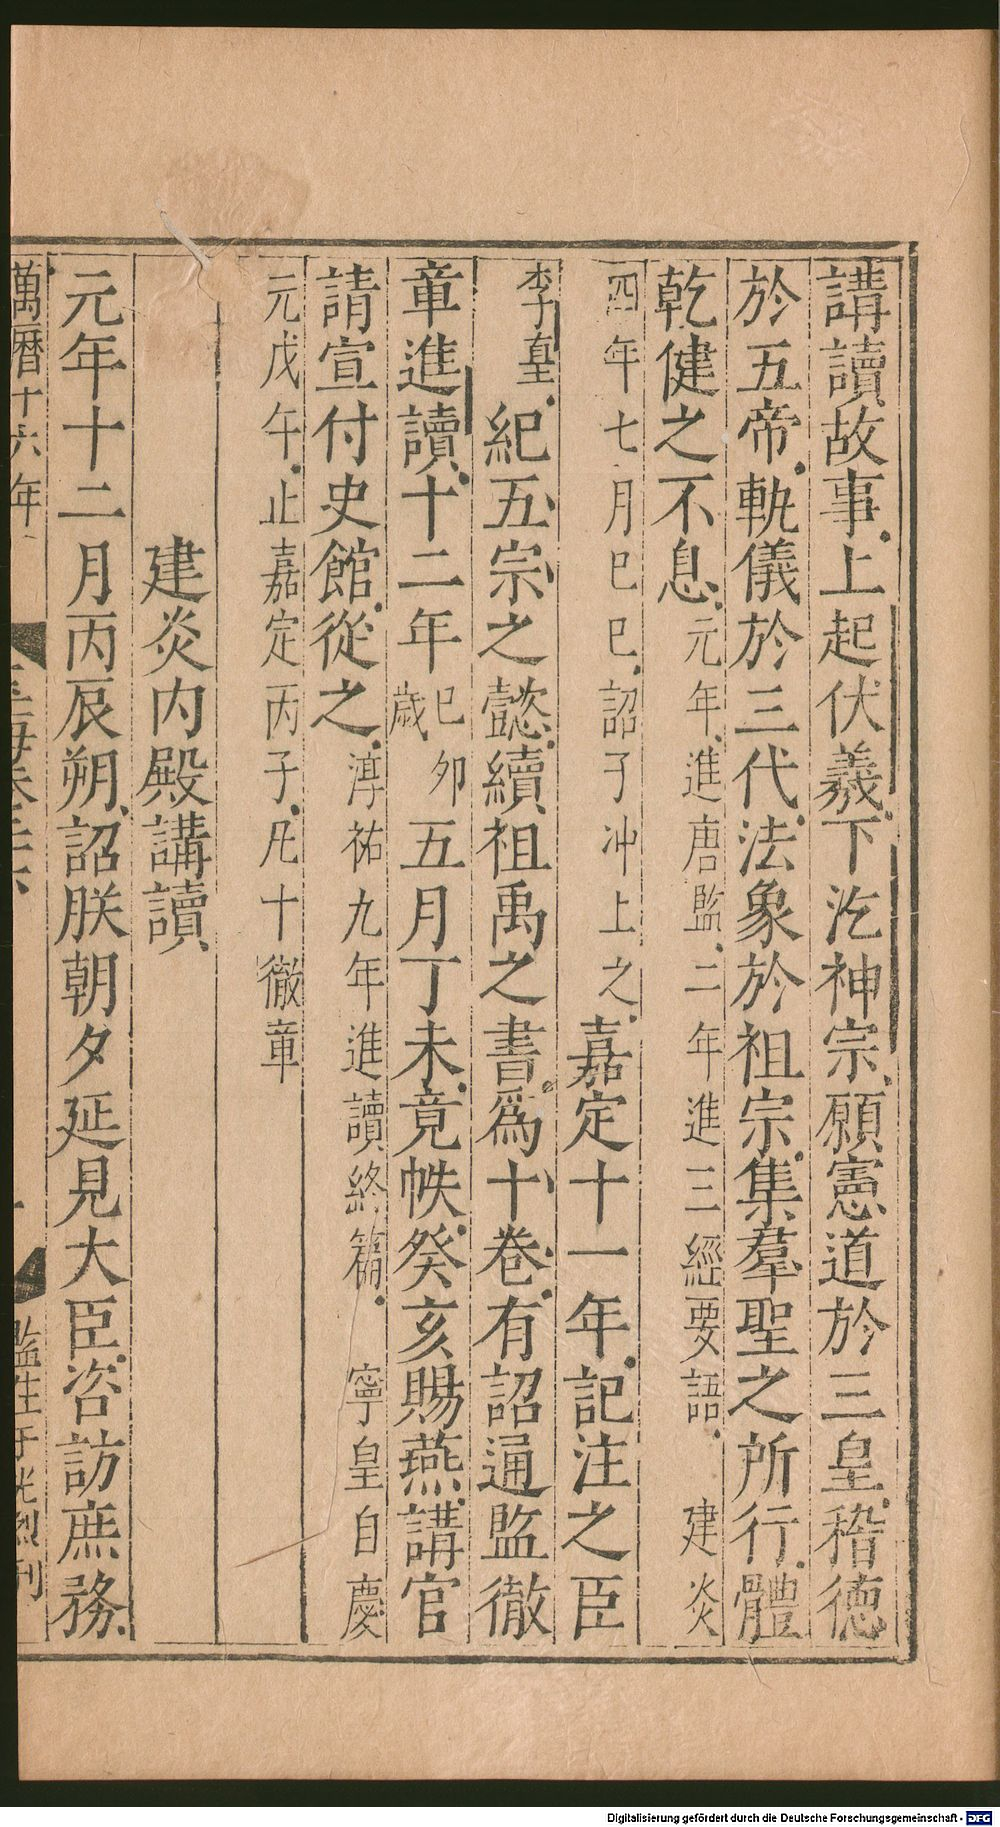 講讀故事上起伏羲下汔神宗願憲道於三皇稽德
於五帝軌儀於三代法象於祖宗集羣聖之所行體
乾健之不息元年進唐監二年進三經要語建炎
四年七月巳巳詔子沖上之嘉定十一年記注之臣
李𡌴紀五宗之懿續祖禹之書爲十卷有詔通監徹
章進讀十二年巳卯歲五月丁未竟帙癸亥賜燕講官
請宣付史館從之淳祐九年進讀終篇寧皇自慶
元戊午止嘉定丙子凡十徹章
建炎内殿講讀
元年十二月丙辰朔詔朕朝夕延見大臣咨訪庶務
萬曆十六年
監生于光烈刊
Digitalisierung gefördert durch die Deutsche Forschungsgemeinschaft - DFG